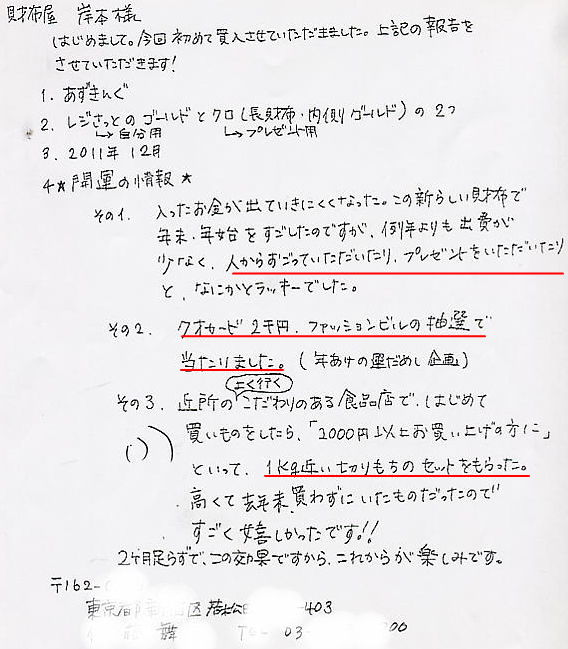 財布屋 岸本様
はじめまして。今回初めて買入させていただきました。上記の報告を
させていただきます!
1. あずきんぐ
2. レジさっとの ゴールド と クロ (長財布・内側ゴールド) の 2つ
↳自分用 ↳プレゼント用
3. 2011年 12月
4★ 開運の情報 ★
その1. 入ったお金が出ていきにくくなった。この新らしい財布で
年末・年始をすごしたのですが、例年よりも出費が
少なく、人からおごっていただいたり、プレゼントをいただいたり
と、なにかとラッキーでした。
その2. クオカード 2千円、ファッションビルの抽選で
当たりました。(年あけの運だめし企画)
よく行く
その3. 近所のこだわりのある食品店で、はじめて
買いものをしたら、「2000円以上お買い上げの方に」
といって、1Kg近い切りもちのセットをもらった。
高くて去年末、買わずにいたものだったので
すごく嬉しかったです!!
2ヶ月足らずで、この効果ですから、これからが楽しみです。
〒162-
東京都 区若松 -403
舞 03- 00